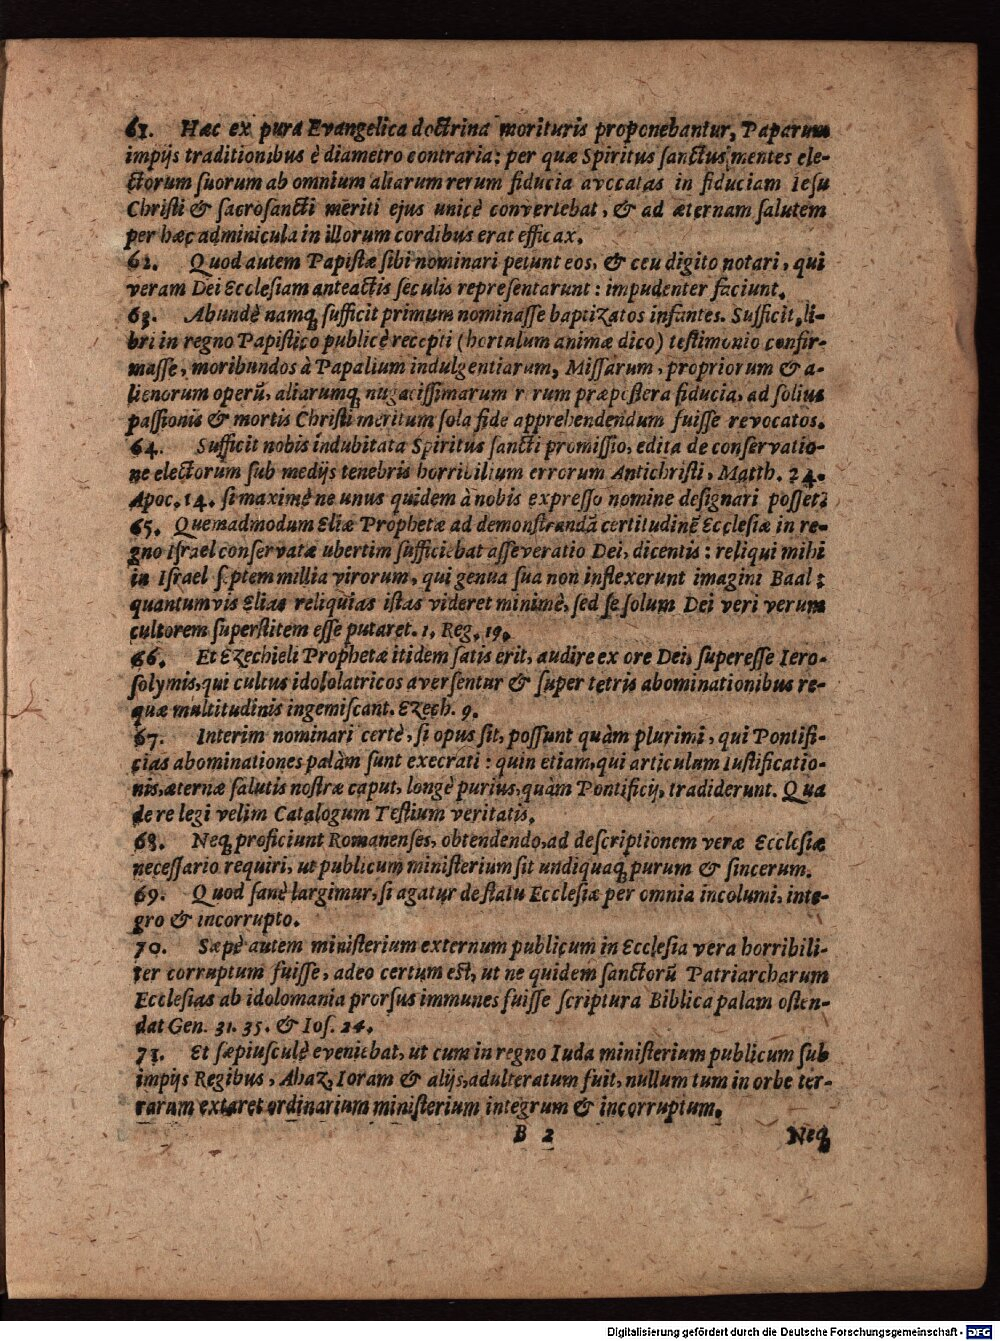 61. Hæc ex pura Evangelica doctrina morituris proponebantur, Paparum
impijs traditionibus è diametro contraria: per quæ Spiritus sanctus mentes ele-
ctorum suorum ab omnium aliarum rerum fiducia avocatas in fiduciam Iesu
Christi & sacrosancti meriti ejus unicè convertebat, & ad æternam salutem
per hæc adminicula in illorum cordibus erat efficax.
62. Quod autem Papistæ sibi nominari petunt eos, & ceu digito notari, qui
veram Dei Ecclesiam anteactis seculis representarunt: impudenter faciunt.
63. Abundè namq; sufficit primum nominasse baptizatos infantes. Sufficit, li-
bri in regno Papistico publicè recepti (hortulum animæ dico) testimonio confir-
masse, moribundos à Papalium indulgentiarum, Missarum, propriorum & a-
lienorum operū, aliarumq; nugacissimarum rerum præpostera fiducia, ad solius
passionis & mortis Christi meritum sola fide apprehendendum fuisse revocatos.
64. Sufficit nobis indubitata Spiritus sancti promissio, edita de conservatio-
ne electorum sub medijs tenebris horribilium errorum Antichristi, Matth. 24.
Apoc. 14. si maximè ne unus quidem à nobis expresso nomine designari posset.
65. Quemadmodum Eliæ Prophetæ ad demonstrandā certitudinē Ecclesiæ in re-
gno Israel conservatæ ubertim sufficiebat asseveratio Dei, dicentis: reliqui mihi
in Israel septem millia virorum, qui genua sua non inflexerunt imagini Baal:
quantumvis Elias reliquias istas videret minimè, sed se solum Dei veri verum
cultorem superstitem esse putaret. 1. Reg. 19.
66. Et Ezechieli Prophetæ itidem satis erit, audire ex ore Dei, superesse Iero-
solymis, qui cultus idololatricos aversentur & super tetris abominationibus re-
quæ multitudinis ingemiscant. Ezech. 9.
67. Interim nominari certè, si opus sit, possunt quàm plurimi, qui Pontifi-
cias abominationes palàm sunt execrati: quin etiam, qui articulum Iustificatio-
nis, æternæ salutis nostræ caput, longè purius, quàm Pontificij, tradiderunt. Qua
de re legi velim Catalogum Testium veritatis.
68. Neq; proficiunt Romanenses, obtendendo, ad descriptionem veræ Ecclesiæ
necessario requiri, ut publicum ministerium sit undiquaq; purum & sincerum.
69. Quod sanè largimur, si agatur de statu Ecclesiæ per omnia incolumi, inte-
gro & incorrupto.
70. Sæpè autem ministerium externum publicum in Ecclesia vera horribili-
ter corruptum fuisse, adeo certum est, ut ne quidem sanctorū Patriarcharum
Ecclesias ab idolomania prorsus immunes fuisse scriptura Biblica palam osten-
dat Gen. 31. 35. & Ios. 24.
71. Et sæpiusculè eveniebat, ut cum in regno Iuda ministerium publicum sub
impijs Regibus, Ahaz, Ioram & alijs, adulteratum fuit, nullum tum in orbe ter-
rarum extaret ordinarium ministerium integrum & incorruptum.
B 2 Neq;
Digitalisierung gefördert durch die Deutsche Forschungsgemeinschaft - DFG